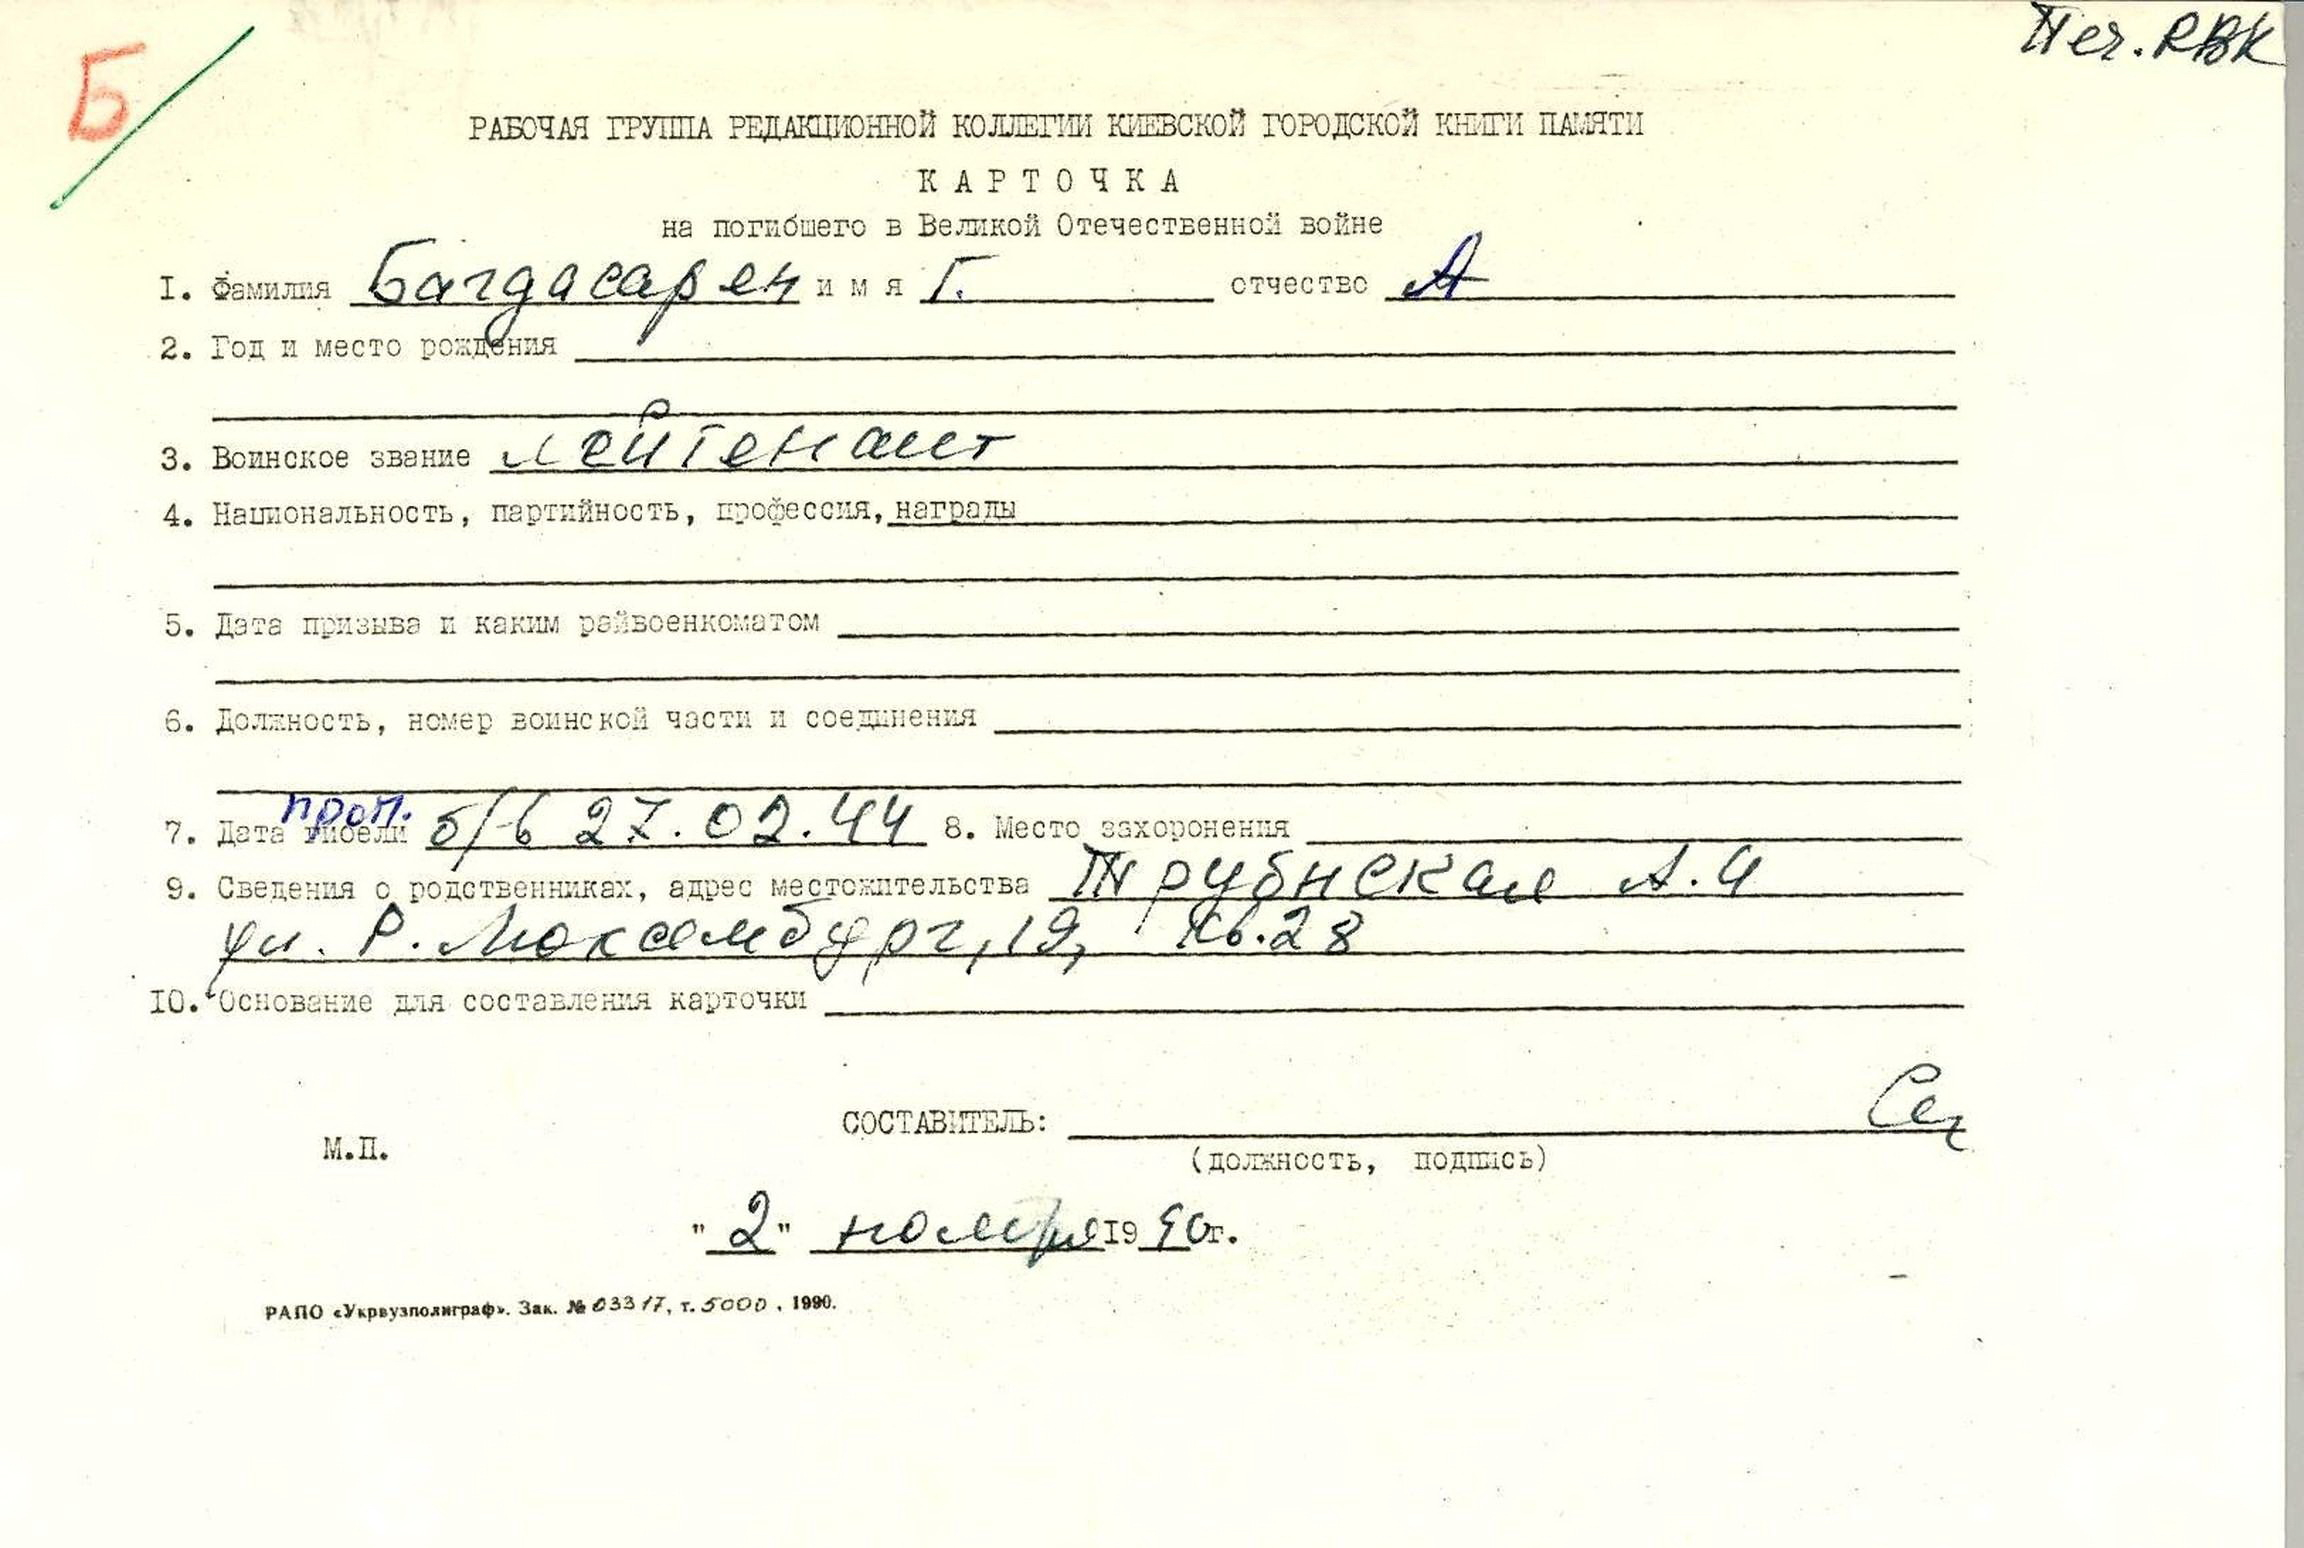 Б/
Печ. РВК
РАБОЧАЯ ГРУППА РЕДАКЦИОННОЙ КОЛЛЕГИИ КИЕВСКОЙ ГОРОДСКОЙ КНИГИ ПАМЯТИ
КАРТОЧКА
на погибшего в Великой Отечественной войне
1. Фамилия Багдасарен имя Г. отчество А
2. Год и место рождения
3. Воинское звание лейтенант
4. Национальность, партийность, профессия, награды
5. Дата призыва и каким райвоенкоматом
6. Должность, номер воинской части и соединения
проп.
7. Дата гибели б/в 27.02.44 8. Место захоронения
9. Сведения о родственниках, адрес местожительства Трубнская А.И
ул. Р. Люксембург, 19, кв. 28
10. Основание для составления карточки
СОСТАВИТЕЛЬ:
М.П.
(должность, подпись)
"2" ноября 1990г.
РАПО «Укрвузполиграф». Зак. № 03317, т. 5000, 1990.